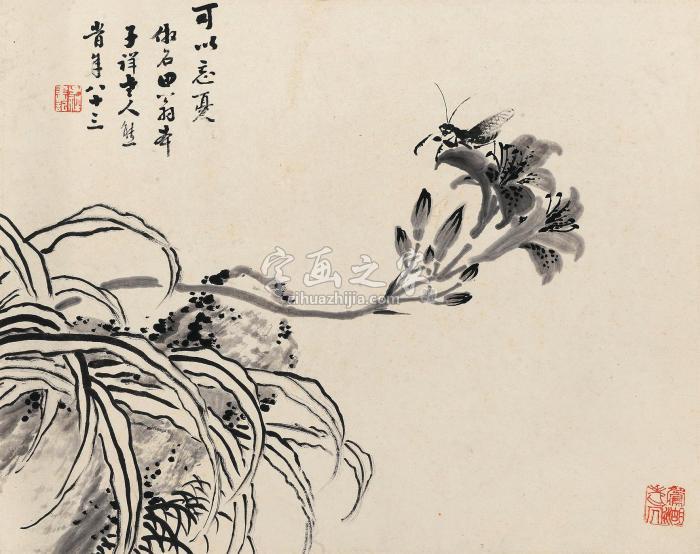 可以忘憂
仿石田翁本
子祥老人熊
時年八十三
字画之家
cihuazhijia.com